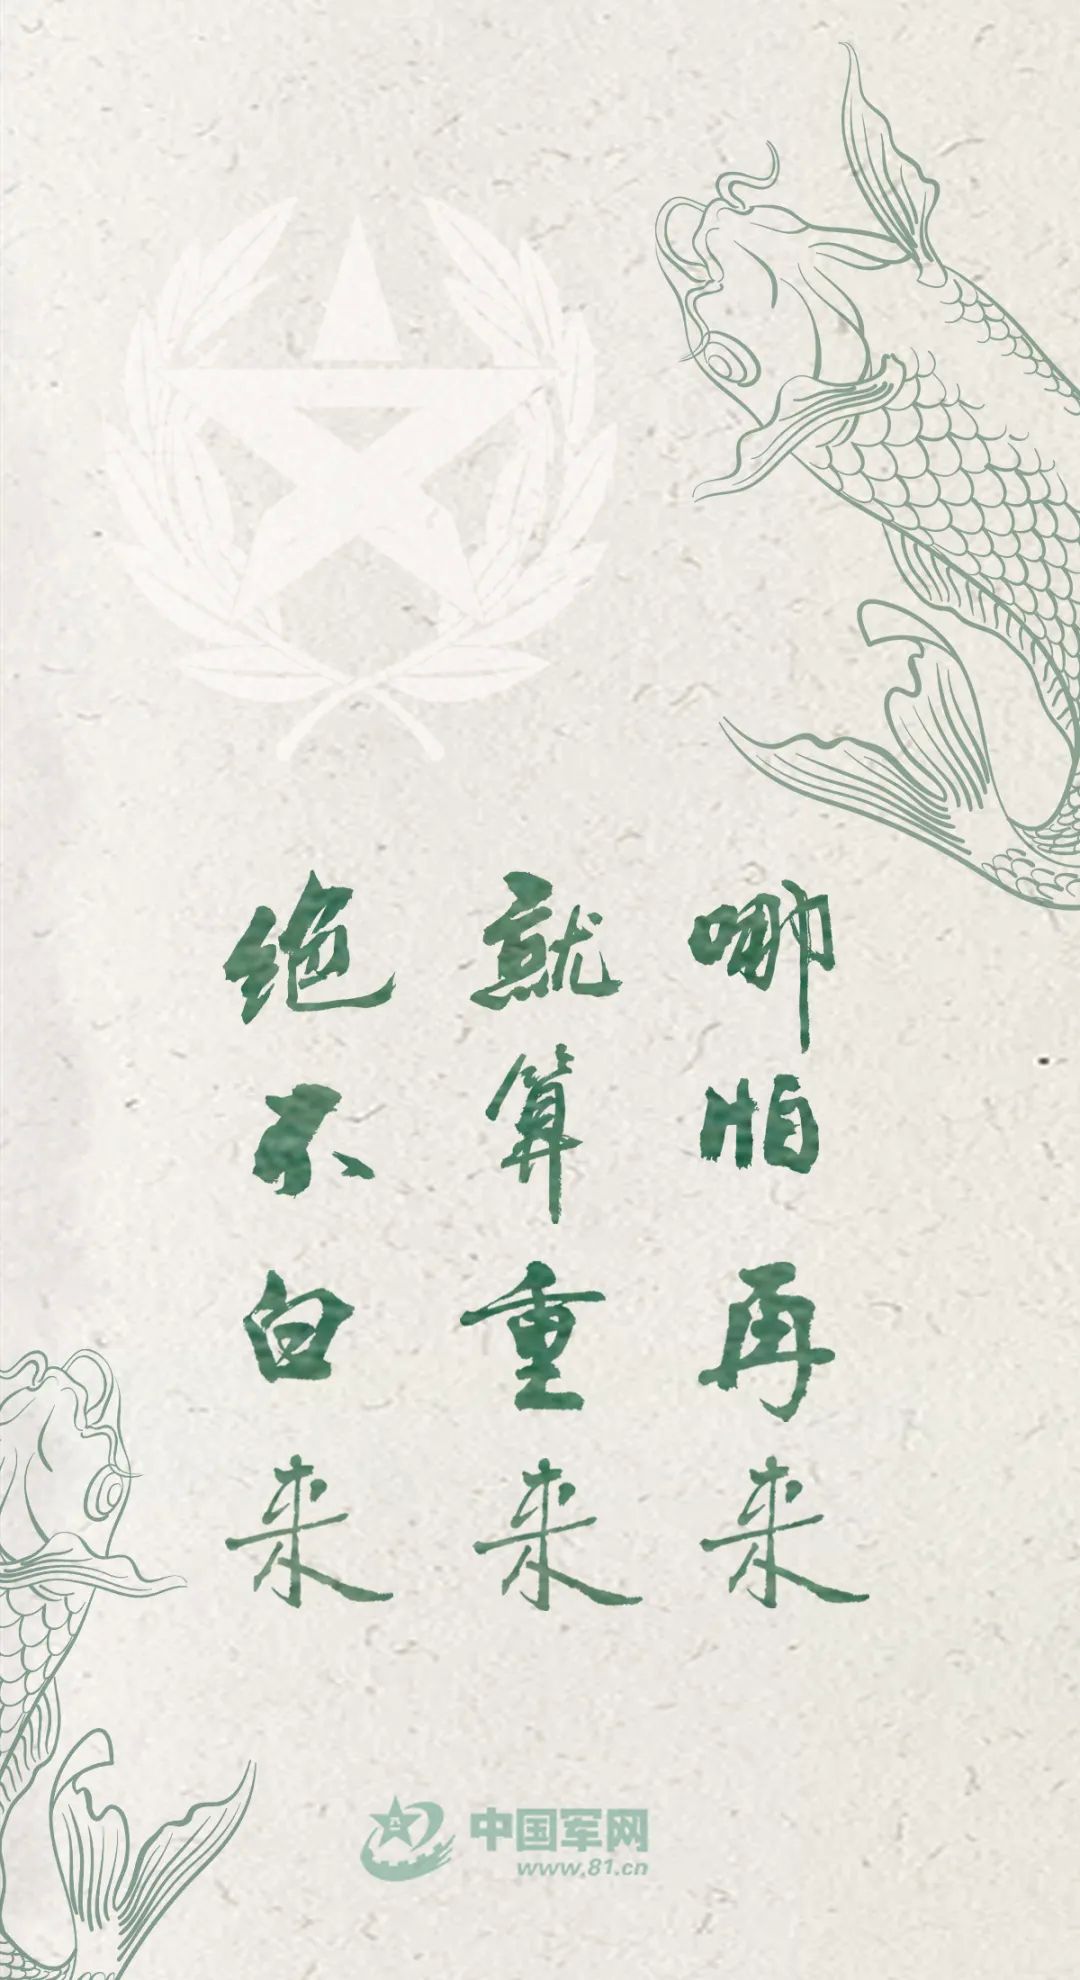 哪怕再来
就算重来
绝不白来
中国军网
www.81.cn